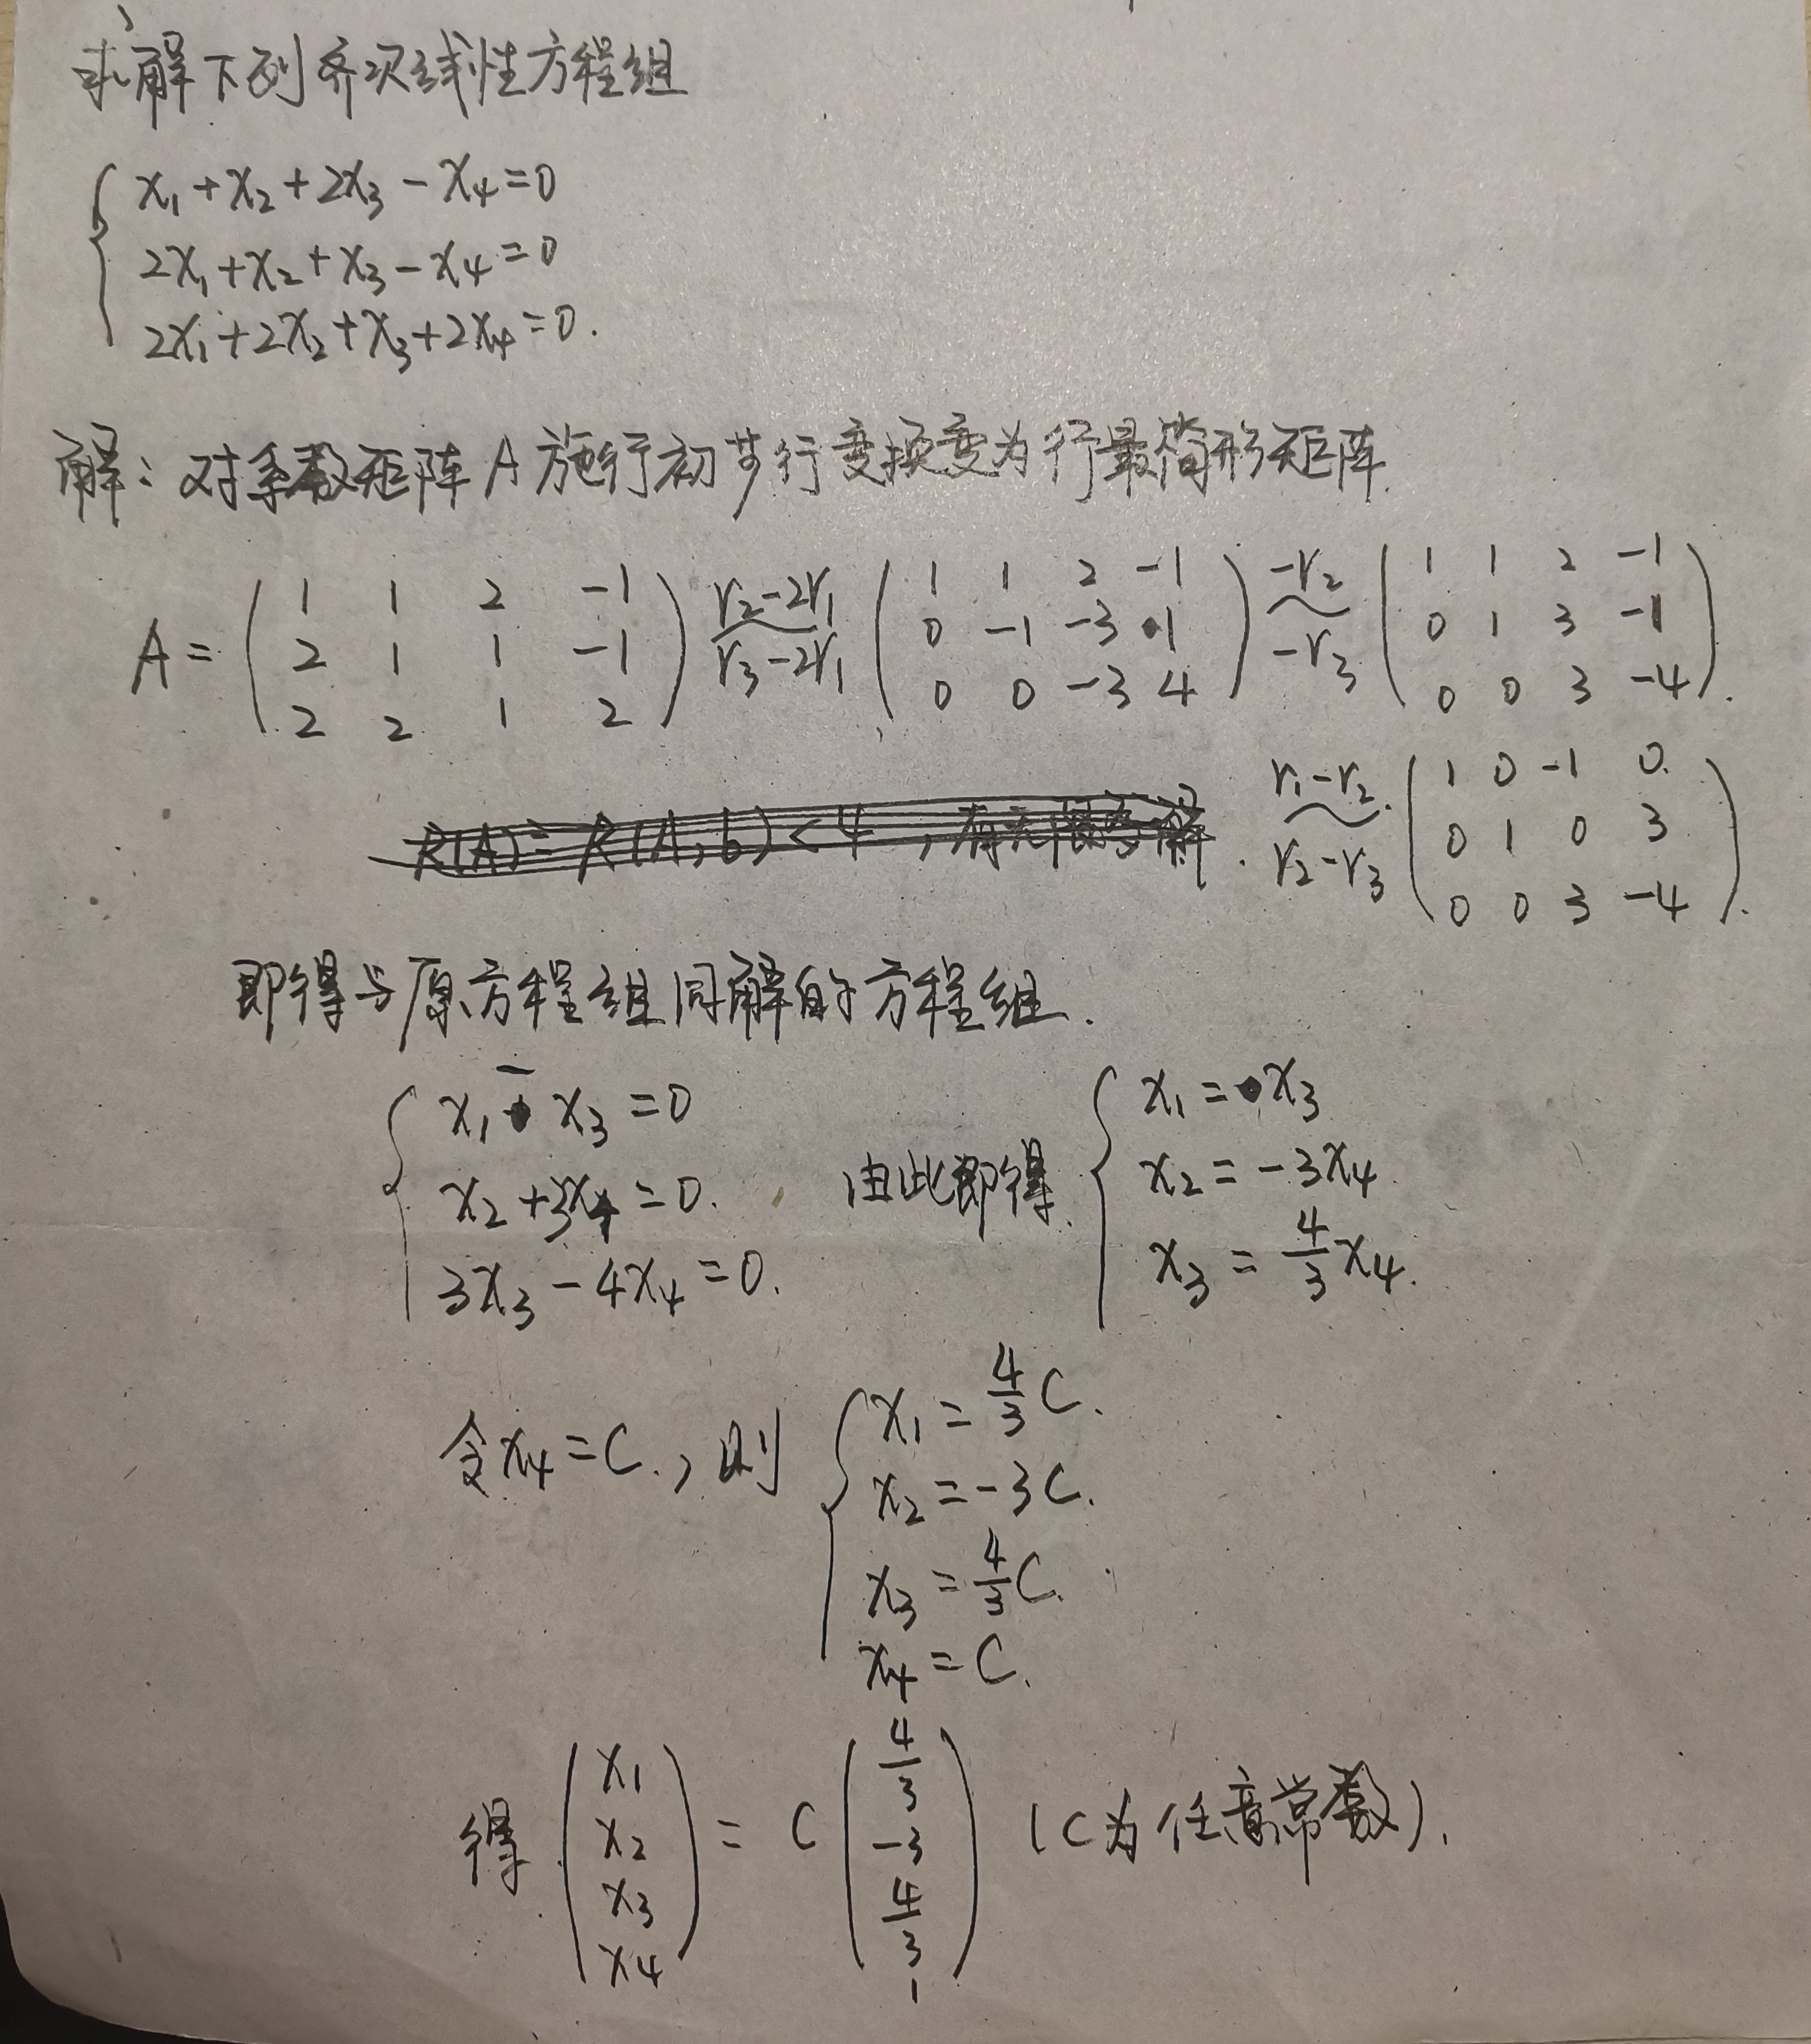 求解下列齐次线性方程组
x₁+x₂+2x₃-x₄=0
2x₁+x₂+x₃-x₄=0
2x₁+2x₂+x₃+2x₄=0.
解：对系数矩阵A施行初等行变换变为行最简形矩阵.
A = ( 1 1 2 -1 ; 2 1 1 -1 ; 2 2 1 2 ) r₂-2r₁ ~ r₃-2r₁ ( 1 1 2 -1 ; 0 -1 -3 1 ; 0 0 -3 4 ) -r₂ ~ -r₃ ( 1 1 2 -1 ; 0 1 3 -1 ; 0 0 3 -4 ).
R(A)=R(A,b)<4，有无限多解. r₁-r₂ ~ r₂-r₃ ( 1 0 -1 0 ; 0 1 0 3 ; 0 0 3 -4 ).
即得与原方程组同解的方程组.
x₁-x₃=0
x₂+3x₄=0.
3x₃-4x₄=0.
由此即得
x₁=x₃
x₂=-3x₄.
x₃=4/3x₄.
令x₄=C.，则
x₁=4/3C.
x₂=-3C.
x₃=4/3C.
x₄=C.
得 ( x₁ ; x₂ ; x₃ ; x₄ ) = C ( 4/3 ; -3 ; 4/3 ; 1 ) (C为任意常数).